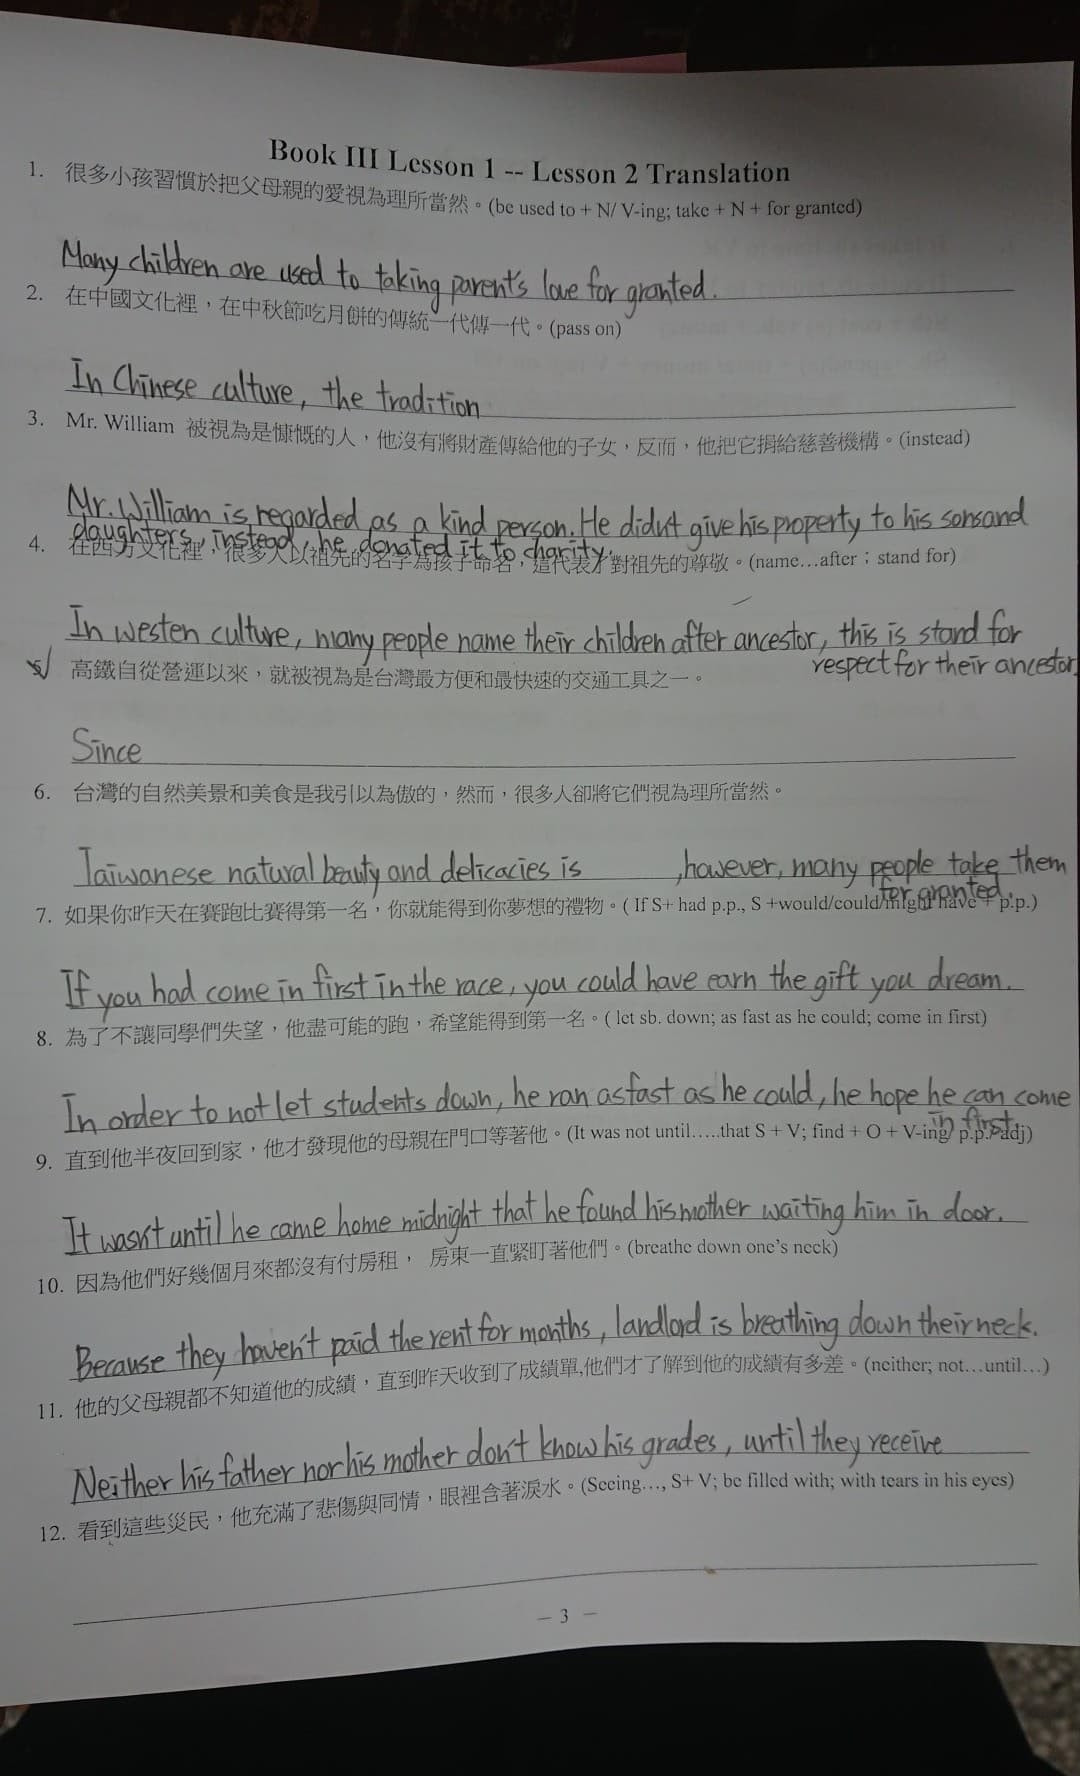 Book III Lesson 1 -- Lesson 2 Translation
1. 很多小孩習慣於把父母親的愛視為理所當然。(be used to + N/ V-ing; take + N + for granted)
Many children are used to taking parent's love for granted.
2. 在中國文化裡，在中秋節吃月餅的傳統一代傳一代。(pass on)
In Chinese culture, the tradition
3. Mr. William 被視為是慷慨的人，他沒有將財產傳給他的子女，反而，他把它捐給慈善機構。(instead)
Mr. William is regarded as a kind person. He didn't give his property to his sons and
daughters, instead, he donated it to charity.
4. 在西方文化裡，很多人以祖先的名字為孩子命名，這代表了對祖先的尊敬。(name…after；stand for)
In westen culture, many people name their children after ancestor, this is stand for
respect for their ancestor.
5 高鐵自從營運以來，就被視為是台灣最方便和最快速的交通工具之一。
Since
6. 台灣的自然美景和美食是我引以為傲的，然而，很多人卻將它們視為理所當然。
Taiwanese natural beauty and delicacies is , however, many people take them
for granted.
7. 如果你昨天在賽跑比賽得第一名，你就能得到你夢想的禮物。( If S+ had p.p., S +would/could/might have + p.p.)
If you had come in first in the race, you could have earn the gift you dream.
8. 為了不讓同學們失望，他盡可能的跑，希望能得到第一名。( let sb. down; as fast as he could; come in first)
In order to not let students down, he ran as fast as he could, he hope he can come
in first.
9. 直到他半夜回到家，他才發現他的母親在門口等著他。(It was not until…..that S + V; find + O + V-ing/ p.p./ adj)
It wasn't until he came home midnight that he found his mother waiting him in door.
10. 因為他們好幾個月來都沒有付房租， 房東一直緊盯著他們。(breathe down one's neck)
Because they haven't paid the rent for months, landlord is breathing down their neck.
11. 他的父母親都不知道他的成績，直到昨天收到了成績單,他們才了解到他的成績有多差。(neither; not…until…)
Neither his father nor his mother don't know his grades, until they receive
12. 看到這些災民，他充滿了悲傷與同情，眼裡含著淚水。(Seeing…, S+ V; be filled with; with tears in his eyes)
– 3 –